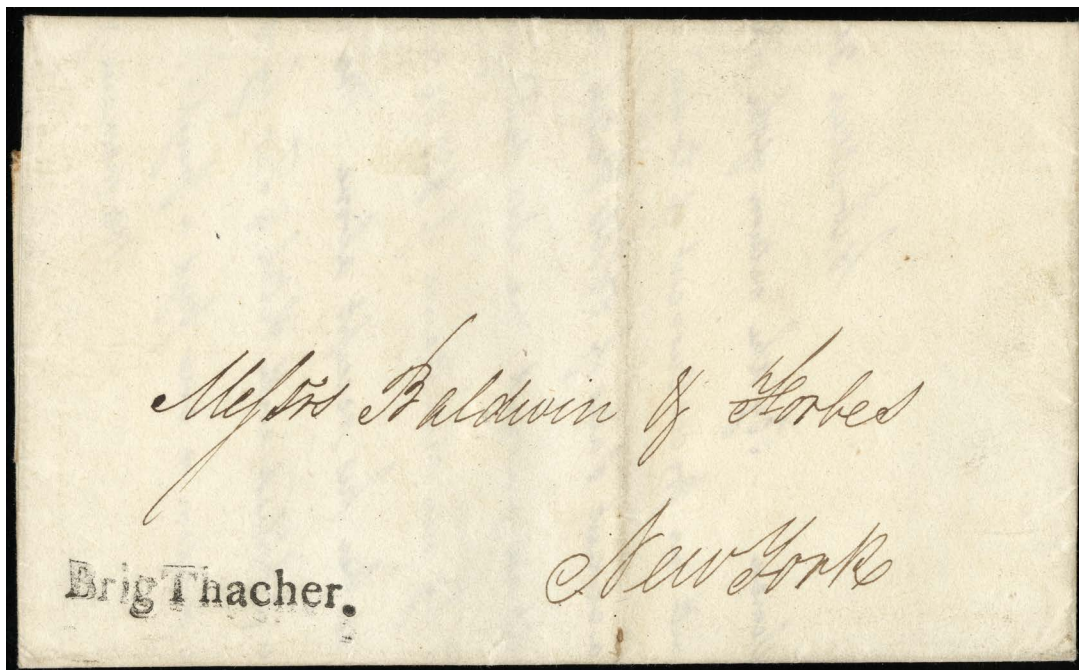 Messrs Baldwin & Forbes
New York
Brig Thacher.